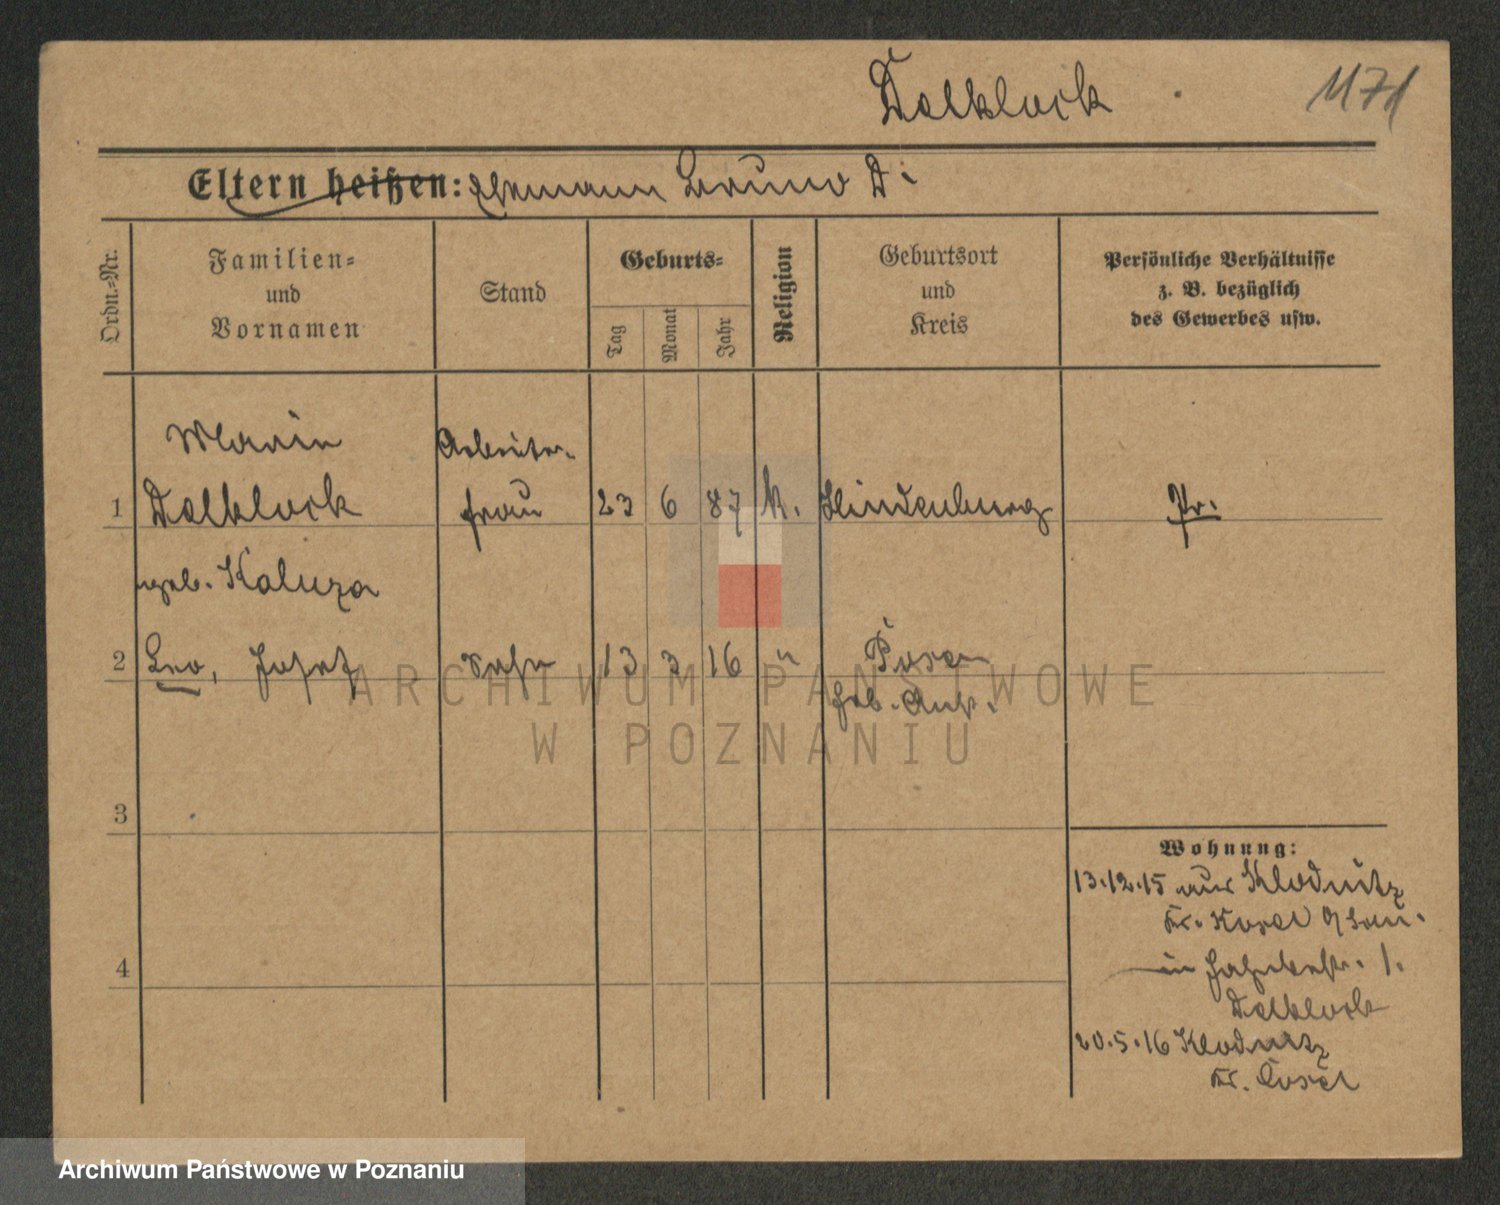 Dalklock
1171
Eltern heißen: Ehemann Bruno D.
Ordn.-Nr.
Familien-
und
Vornamen
Stand
Geburts-
Tag
Monat
Jahr
Religion
Geburtsort
und
Kreis
Persönliche Verhältnisse
z. B. bezüglich
des Gewerbes usw.
Marie Arbeiter-
1 Dalklock frau 23 6 87 k. Hindenburg Pr.
geb. Kaluza
2 Leo, Josef Sohn 13 3 16 " Posen
3
4
Wohnung:
13.12.15 aus Klodnitz
Kr. Kosel
in 1.
Dalklock
20.5.16 Klodnitz
Kr. Cosel
ARCHIWUM PAŃSTWOWE
W POZNANIU
Archiwum Państwowe w Poznaniu